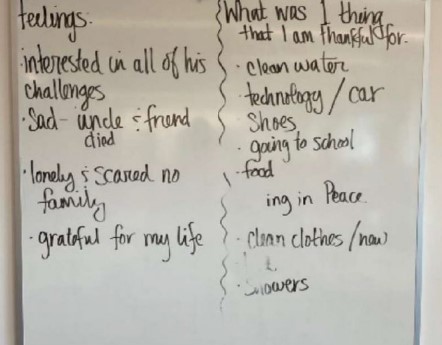 feelings.
interested in all of his
challenges
· Sad - uncle & friend
died
· lonely & scared no
family
· grateful for my life
What was 1 thing
that I am thankful for.
· clean water
· technology / car
Shoes
· going to school
· food
ing in Peace.
· clean clothes / new
· showers